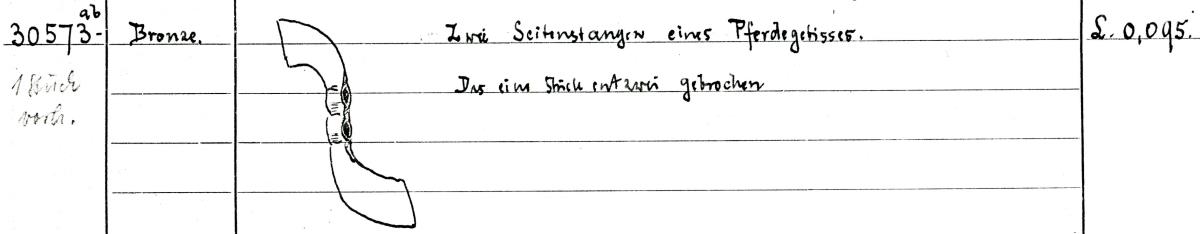 ab
30573- Bronze. Zwei Seitenstangen eines Pferdegebisses. L. 0,095.
1 Stück Das eine Stück entzwei gebrochen
vorh.